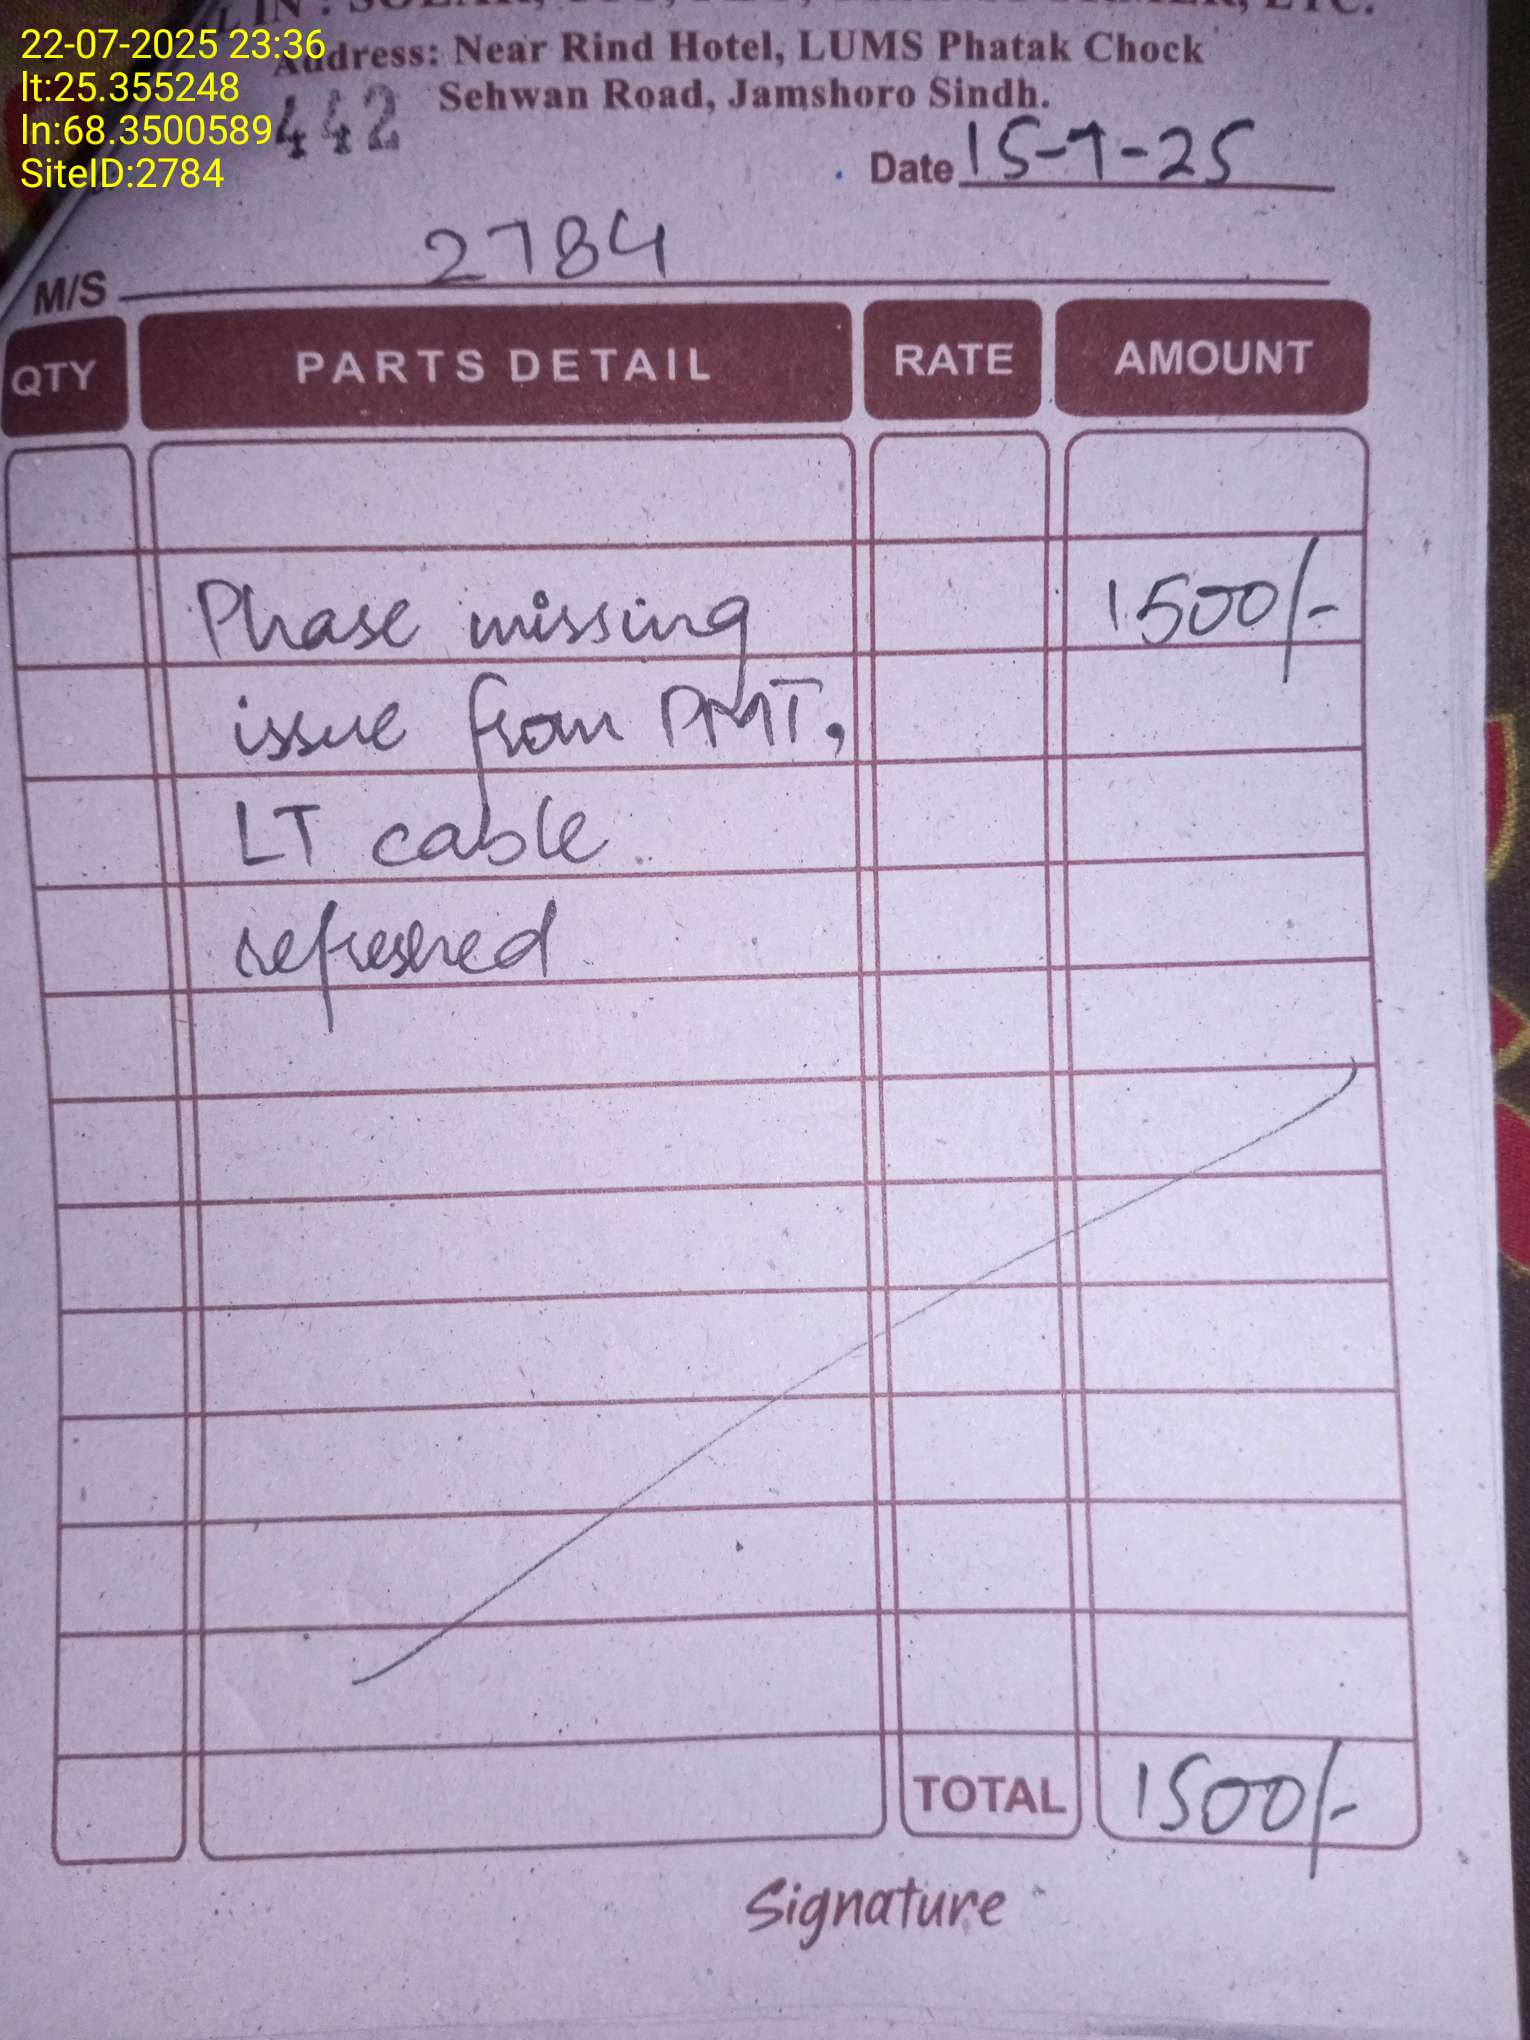 22-07-2025 23:36
lt:25.355248
ln:68.3500589
SiteID:2784
IN : SOLAR, ETC.
Address: Near Rind Hotel, LUMS Phatak Chock
Sehwan Road, Jamshoro Sindh.
442
Date 15-7-25
M/S 2784
QTY PARTS DETAIL RATE AMOUNT
Phase missing 1500/-
issue from PMT,
LT cable
refreshed
TOTAL 1500/-
Signature